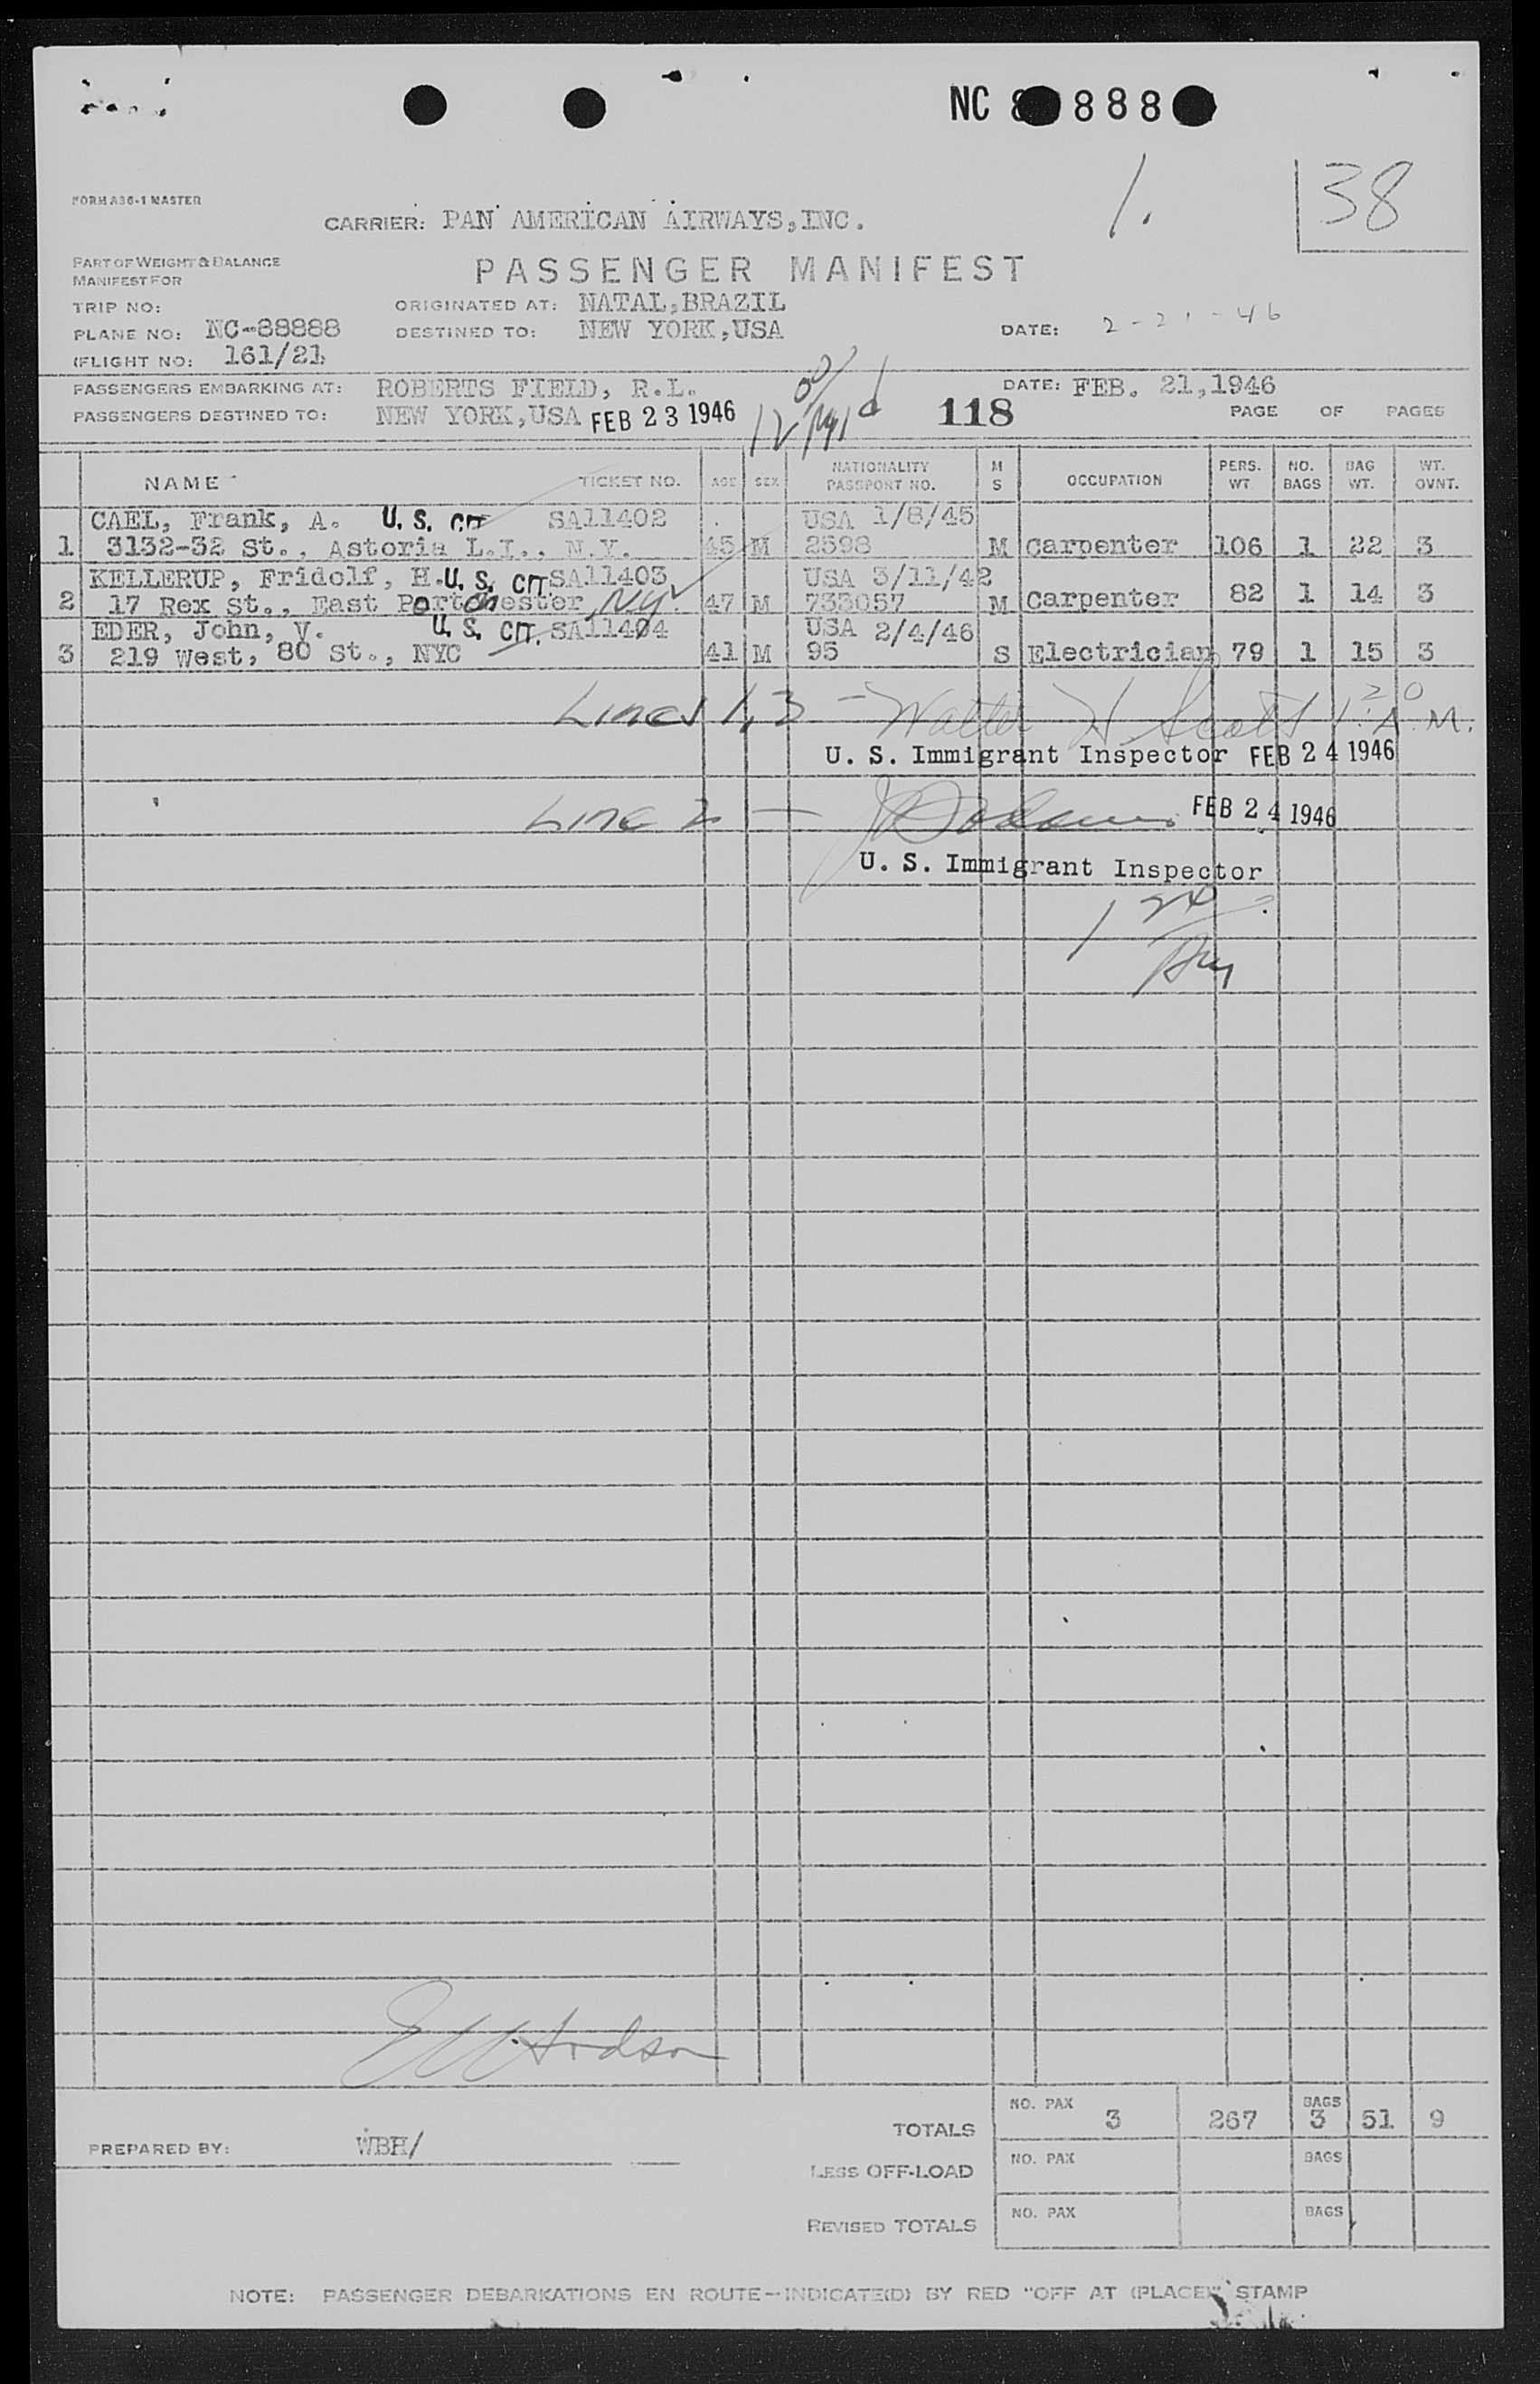 NC 8 888
1.
38
FORM A36-1 MASTER
CARRIER: PAN AMERICAN AIRWAYS, INC.
PART OF WEIGHT & BALANCE
MANIFEST FOR
PASSENGER MANIFEST
TRIP NO:
ORIGINATED AT: NATAL, BRAZIL
PLANE NO: NC-88888
DESTINED TO: NEW YORK, USA
DATE: 2-21-46
(FLIGHT NO: 161/21
PASSENGERS EMBARKING AT: ROBERTS FIELD, R.L.
DATE: FEB. 21, 1946
PASSENGERS DESTINED TO: NEW YORK, USA FEB 23 1946
118
PAGE OF PAGES
NAME TICKET NO. AGE SEX NATIONALITY PASSPORT NO. M S OCCUPATION PERS. WT. NO. BAGS BAG WT. WT. OVNT.
CAEL, Frank, A. U. S. CIT SA11402 USA 1/8/45
1 3132-32 St., Astoria L.I., N.Y. 45 M 2598 M Carpenter 106 1 22 3
KELLERUP, Fridolf, H. U. S. CIT. SA11403 USA 3/11/42
2 17 Rex St., East Portchester, NY. 47 M 733057 M Carpenter 82 1 14 3
EDER, John, V. U. S. CIT. SA11404 USA 2/4/46
3 219 West, 80 St., NYC 41 M 95 S Electrician 79 1 15 3
Lines 1, 3 - Walter H. Scott 1:20 A.M.
U. S. Immigrant Inspector FEB 24 1946
Line 2 - FEB 24 1946
U. S. Immigrant Inspector
Hodson
TOTALS NO. PAX 3 267 BAGS 3 51 9
PREPARED BY: WBH/
LESS OFF-LOAD NO. PAX BAGS
REVISED TOTALS NO. PAX BAGS
NOTE: PASSENGER DEBARKATIONS EN ROUTE--INDICATE(D) BY RED "OFF AT (PLACE)" STAMP